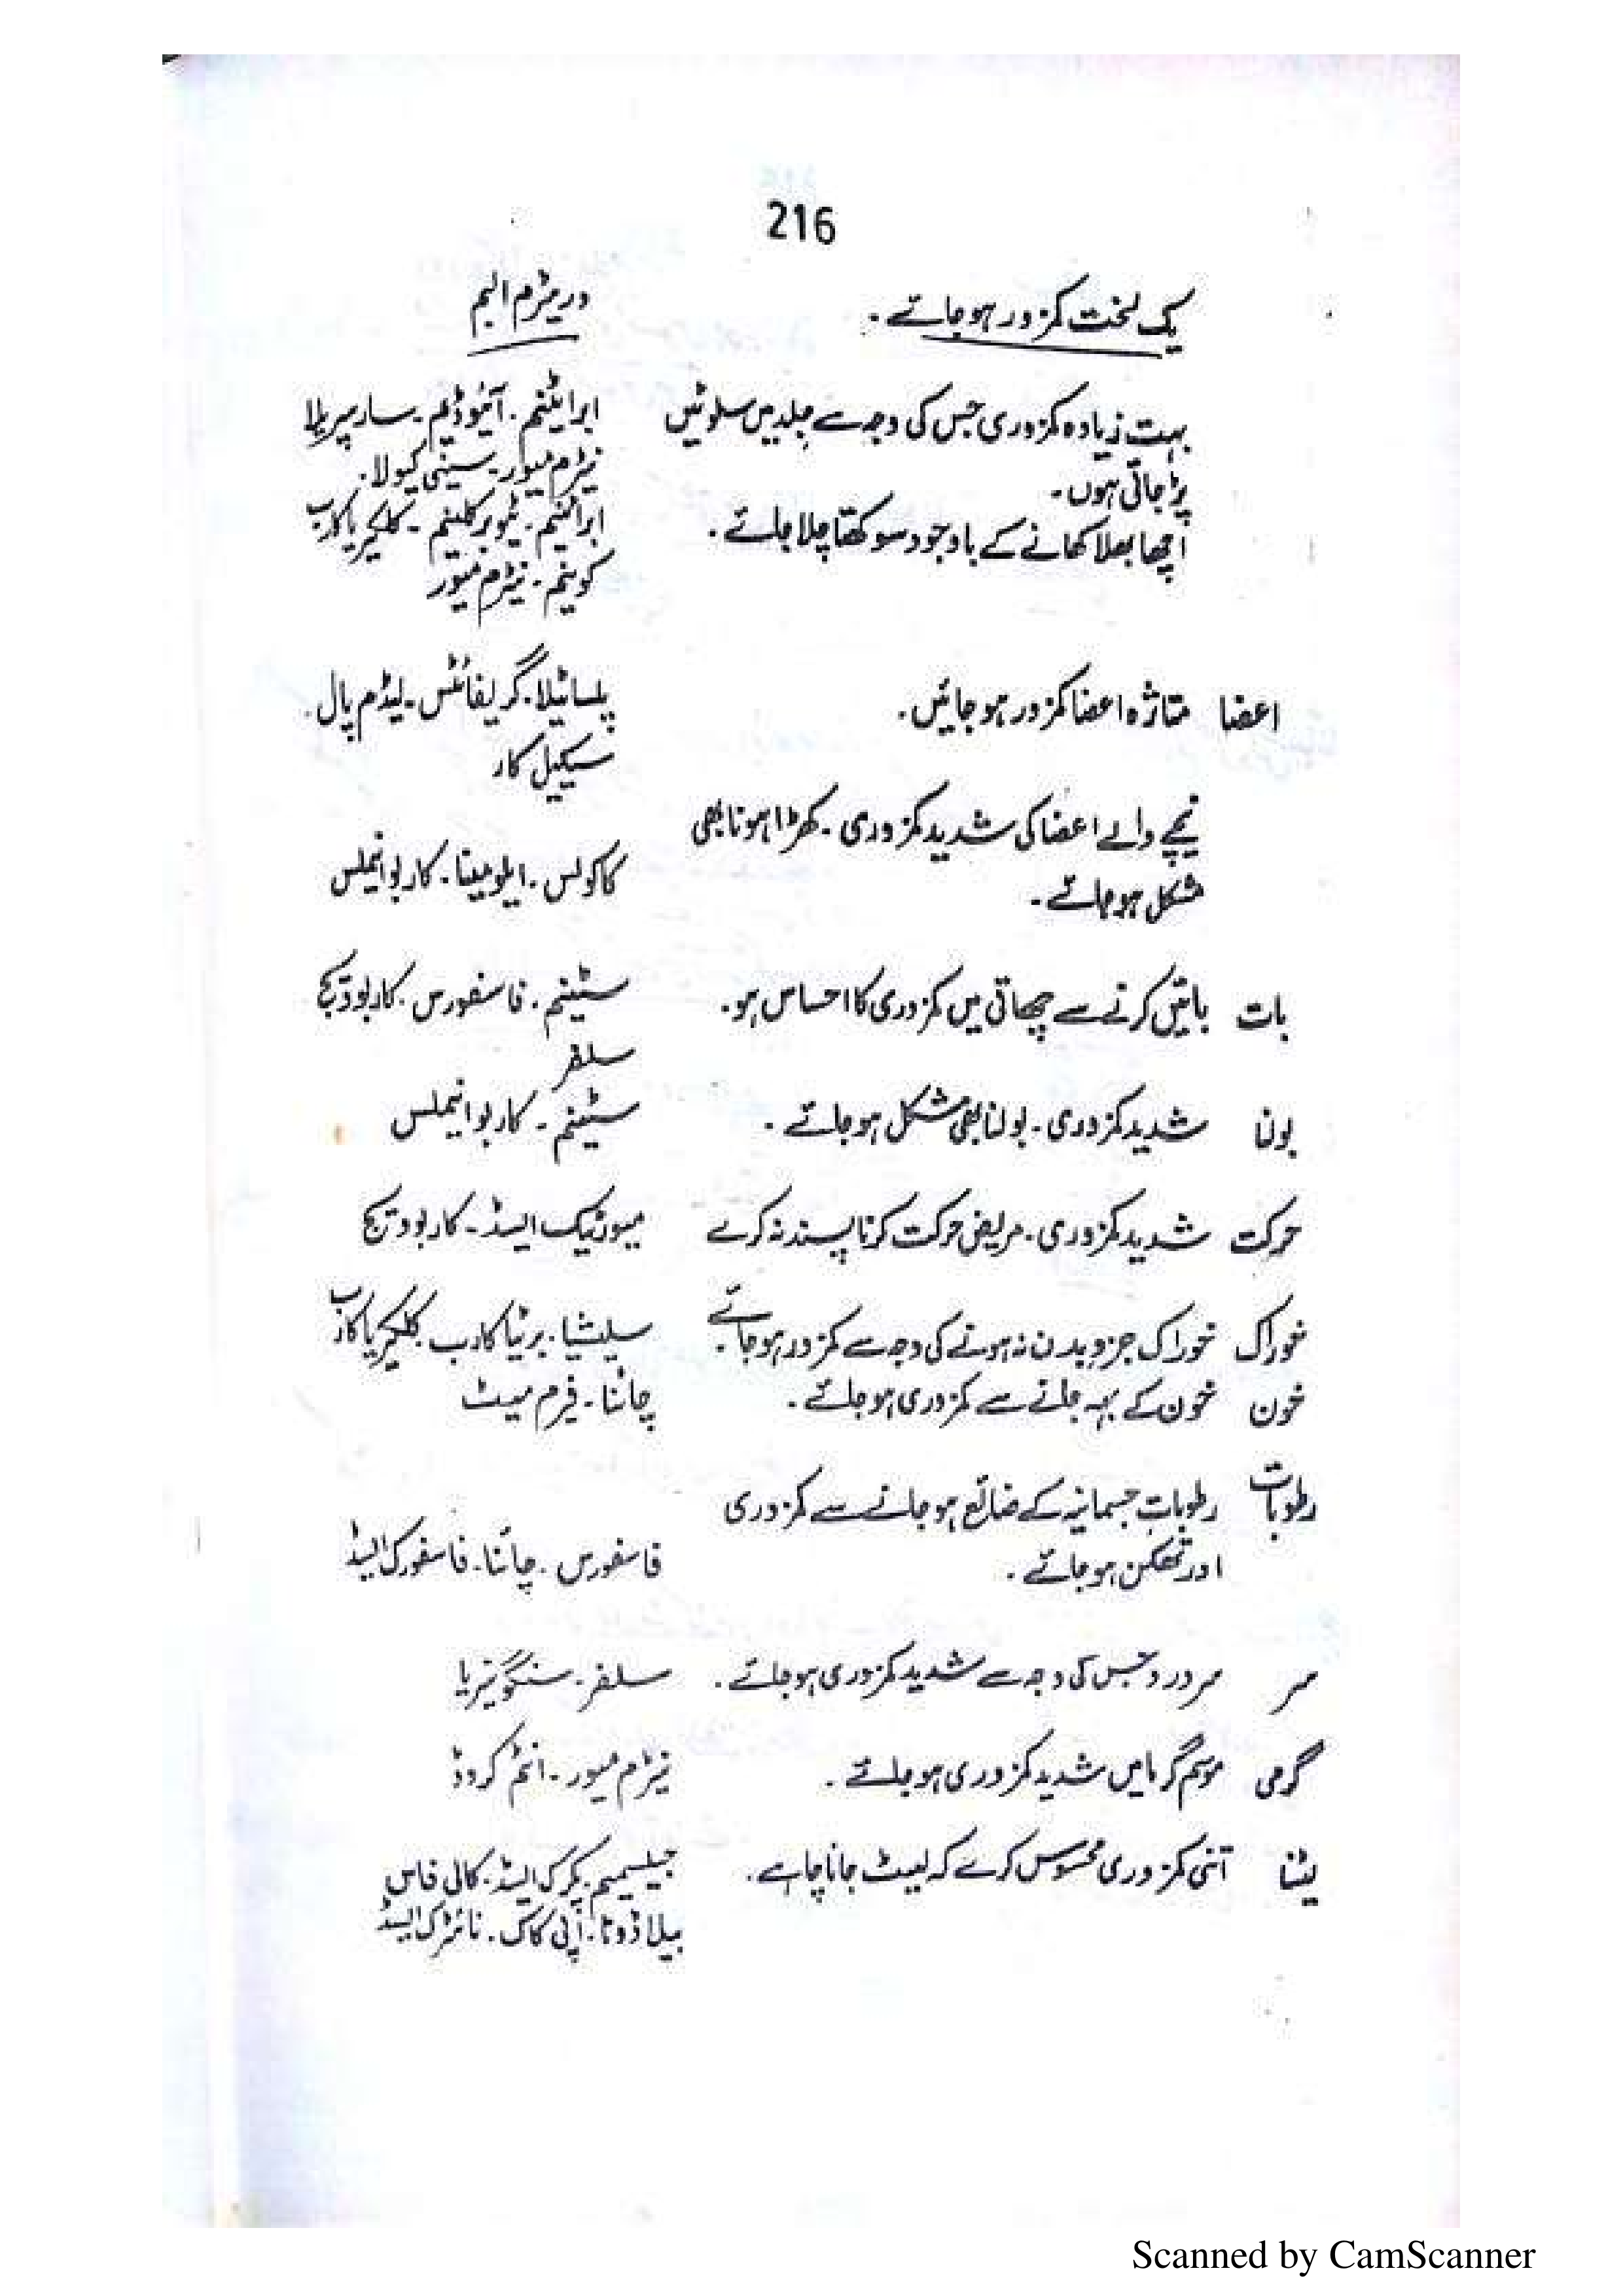 216
یک لخت کمزور ہو جائے۔ وریٹرم البم
بہت زیادہ کمزوری جس کی وجہ سے جلد میں سلوٹیں ابراٹینم۔ آئیوڈیم۔ سارسپریلا
پڑ جاتی ہوں۔ نیٹرم میور۔ سینی کیولا۔
اچھا بھلا کھانے کے باوجود سوکھتا چلا جائے۔ ابراٹینم۔ ٹیوبرکلینم۔ کلکیریا کارب
کونیم۔ نیٹرم میور
اعضا متاثرہ اعضا کمزور ہو جائیں۔ پلساٹیلا۔ گریفائٹس۔ لیڈم پال۔
سیکیل کار
نیچے والے اعضا کی شدید کمزوری۔ کھڑا ہونا بھی
مشکل ہو جائے۔ کاکولس۔ ایلومینا۔ کاربوانیملس
بات باتیں کرنے سے چھاتی میں کمزوری کا احساس ہو۔ سٹینم۔ فاسفورس۔ کاربوویج
سلفر
بولنا شدید کمزوری۔ بولنا بھی مشکل ہو جائے۔ سٹینم۔ کاربوانیملس
حرکت شدید کمزوری۔ مریض حرکت کرنا پسند نہ کرے میورٹیک ایسڈ۔ کاربوویج
خوراک خوراک جزو بدن نہ ہونے کی وجہ سے کمزور ہو جائے۔ سلیشیا۔ برٹیا کارب۔ کلکیریا کارب
خون خون کے بہہ جانے سے کمزوری ہو جائے۔ چائنا۔ فیرم میٹ
رطوبات رطوبات جسمانیہ کے ضائع ہو جانے سے کمزوری
اور تھکن ہو جائے۔ فاسفورس۔ چائنا۔ فاسفورک ایسڈ
سر سر درد جس کی وجہ سے شدید کمزوری ہو جائے۔ سلفر۔ سنگونیریا
گرمی موسم گرما میں شدید کمزوری ہو جائے۔ نیٹرم میور۔ انٹم کروڈ
لیٹنا اتنی کمزوری محسوس کرے کہ لیٹ جانا چاہے۔ جیلسیمیم۔ پکرک ایسڈ۔ کالی فاس
بیلا ڈونا۔ اپی کاک۔ نائٹرک ایسڈ
Scanned by CamScanner